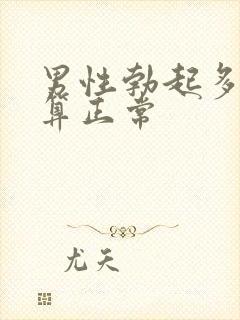 男性勃起多
算正常
尤天